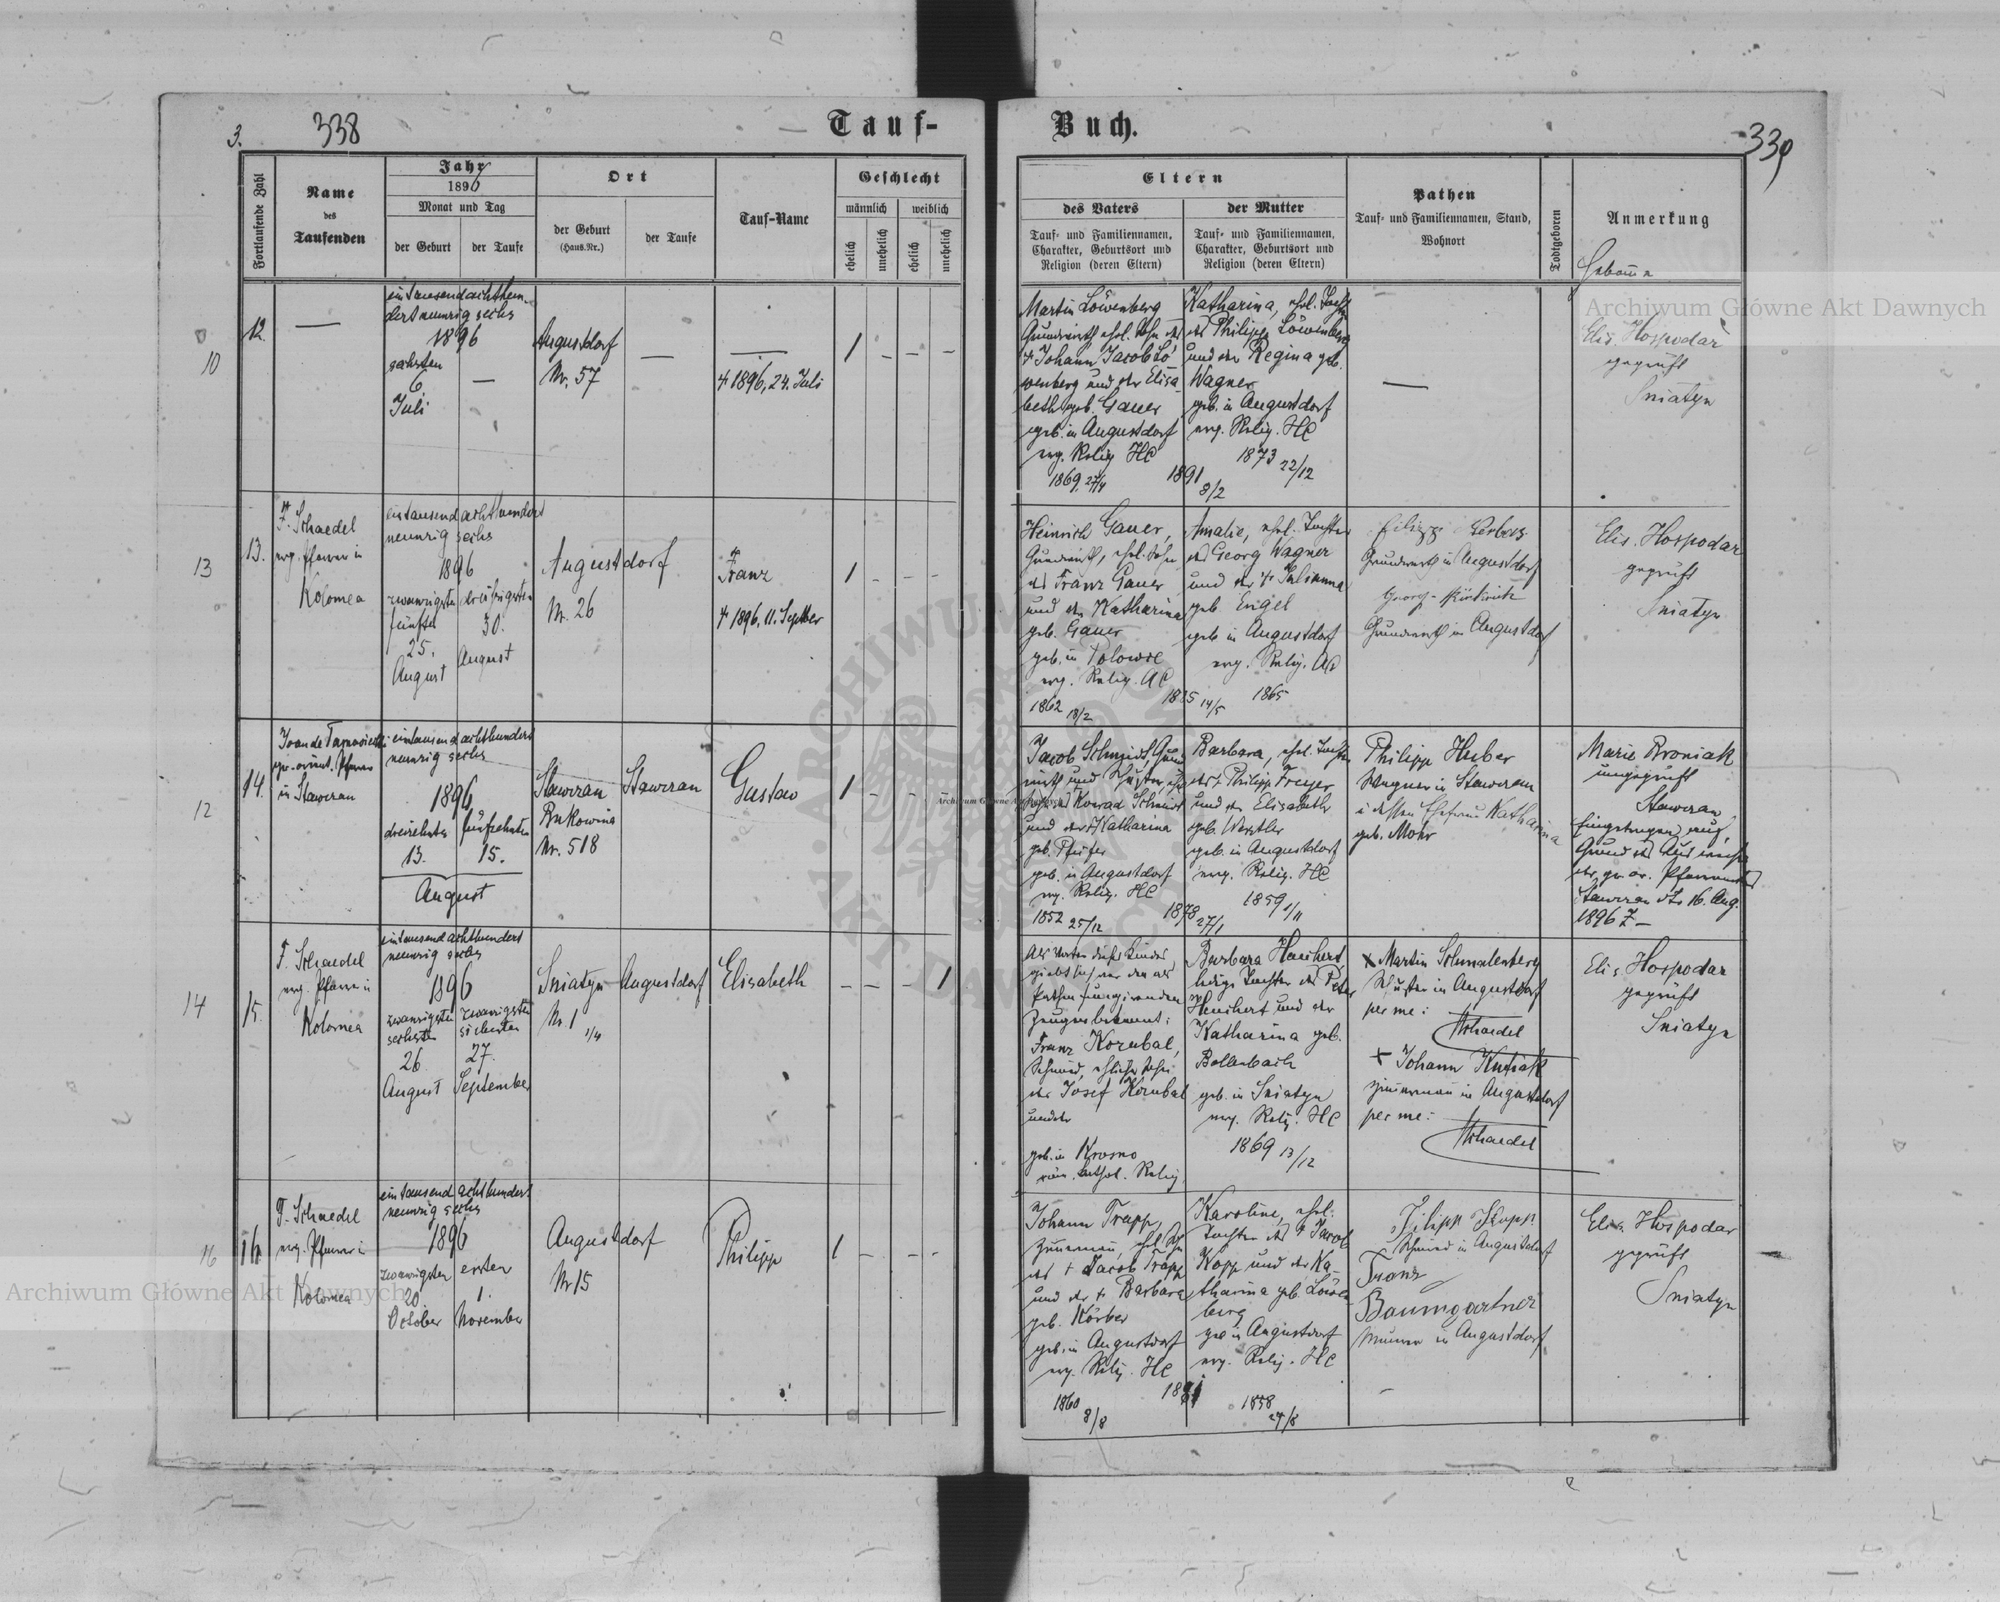 3. 338
Tauf-
Buch.
339
Fortlaufende Zahl
Name
des
Taufenden
Jahr
1896
Monat und Tag
der Geburt
der Taufe
Ort
der Geburt
(Haus-Nr.)
der Taufe
Tauf-Name
Geschlecht
männlich
weiblich
ehelich
unehelich
ehelich
unehelich
Eltern
des Vaters
Tauf- und Familiennamen,
Charakter, Geburtsort und
Religion (deren Eltern)
der Mutter
Tauf- und Familiennamen,
Charakter, Geburtsort und
Religion (deren Eltern)
Pathen
Tauf- und Familiennamen, Stand,
Wohnort
Todtgeboren
Anmerkung
Hebamme
10
12.
—
eintausendachthun-
dertneunzig sechs
1896
sechsten
6
Juli
—
Augustdorf
Nr. 57
—
—
+ 1896, 24. Juli
1 – – –
Martin Löwenberg
Grundwirth ehel. Sohn des
+ Johann Jacob Lö-
wenberg und der Elisa-
beth geb. Gauer
geb. in Augustdorf
evg. Relig. HC
1869, 27/4
1891
8/2
Katharina, ehel. Tochter
des Philipp Löwenberg
und der Regina geb.
Wagner
geb. in Augustdorf
evg. Relig. HC
1873 22/12
—
Elis. Hospodar
geprüft
Sniatyn
13
13.
F. Schaedel
evg. Pfarrer in
Kolomea
eintausendachthundert
neunzig sechs
1896
zwanzigsten
fünften
25.
August
dreißigsten
30.
August
Augustdorf
Nr. 26
+
Franz
+ 1896, 11. September
1 – – –
Heinrich Gauer,
Grundwirth, ehel. Sohn
des Franz Gauer
und der Katharina
geb. Gauer
geb. in Tolowse
evg. Relig. AC
1862 18/2
1885 14/5
Amalie, ehel. Tochter
des Georg Wagner
und der + Julianna
geb. Engel
geb. in Augustdorf
evg. Relig. AC
1865
Filipp Gerberz
Grundwirth in Augustdorf
Georg
Grundwirth in Augustdorf
Elis. Hospodar
geprüft
Sniatyn
12
14.
gr. orient. Pfarrer
in Stawczan
eintausend achthundert
neunzig sechs
1896
dreizehnten
13.
fünfzehnten
15.
August
Stawczan
Bukowina
Nr. 518
Stawczan
Gustav
1 – – –
Jacob Schmidt, Grund-
wirth und Schuster, ehel.
Sohn des Konrad Schmidt
und der + Katharina
geb. Pfeifer
geb. in Augustdorf
evg. Relig. HC
1852 25/12
1878 27/1
Barbara, ehel. Tochter
des + Philipp Freyer
und der Elisabeth
geb. Wertler
geb. in Augustdorf
evg. Relig. HC
1859 1/11
Philipp Huber
Wagner in Stawczan
u dessen Ehefrau Katharina
geb. Mohr
Marie Kroniak
ungeprüft
Stawczan
Eingetragen auf
Grund des Ausweises
des gr. or. Pfarramtes
Stawczan dto 16. Aug.
1896 Z –
14
15.
F. Schaedel
evg. Pfarrer in
Kolomea
eintausend achthundert
neunzig sechs
1896
zwanzigsten
sechsten
26
August
zwanzigsten
siebenten
27.
September
Sniatyn
Nr. 1 1/4
Augustdorf
Elisabeth
– – – 1
Als Vater dieses Kindes
giebt sich vor den als
Pathen fungirenden
Zeugen bekannt:
Franz Korubal,
Schmied, ehlicher Sohn
des Josef Korubal
und der
geb. in Krosno
röm. kathol. Relig.
Barbara Haubert
ledige Tochter des Peter
Heubert und der
Katharina geb.
Bollenbach
geb. in Sniatyn
evg. Relig. HC
1869 13/12
x Martin Schmalenberg
Schuster in Augustdorf
per me:
FSchaedel
x Johann Kudiak
Zimmermann in Augustdorf
per me:
FSchaedel
Elis. Hospodar
geprüft
Sniatyn
16
16.
F. Schaedel
evg. Pfarrer in
Kolomea
eintausend achthundert
neunzig sechs
1896
zwanzigsten
20
October
ersten
1.
November
Augustdorf
Nr 15
Philipp
1 – – –
Johann Trapp,
Zimmermann, ehel. Sohn
des + Jacob Trapp
und der + Barbara
geb. Körber
geb. in Augustdorf
evg. Relig. HC
1860
8/8
1881
Karoline, ehel.
Tochter des + Jacob
Kopp und der Ka-
tharina geb. Löwen-
berg
geb in Augustdorf
evg. Relig. HC
1858
24/8
Filipp Kopp
Schmied in Augustdorf
Franz
Baumgartner
Maurer in Augustdorf
Elis. Hospodar
geprüft
Sniatyn
Archiwum Główne Akt Dawnych
Archiwum Główne Akt Dawnych
Archiwum Główne Akt Dawnych